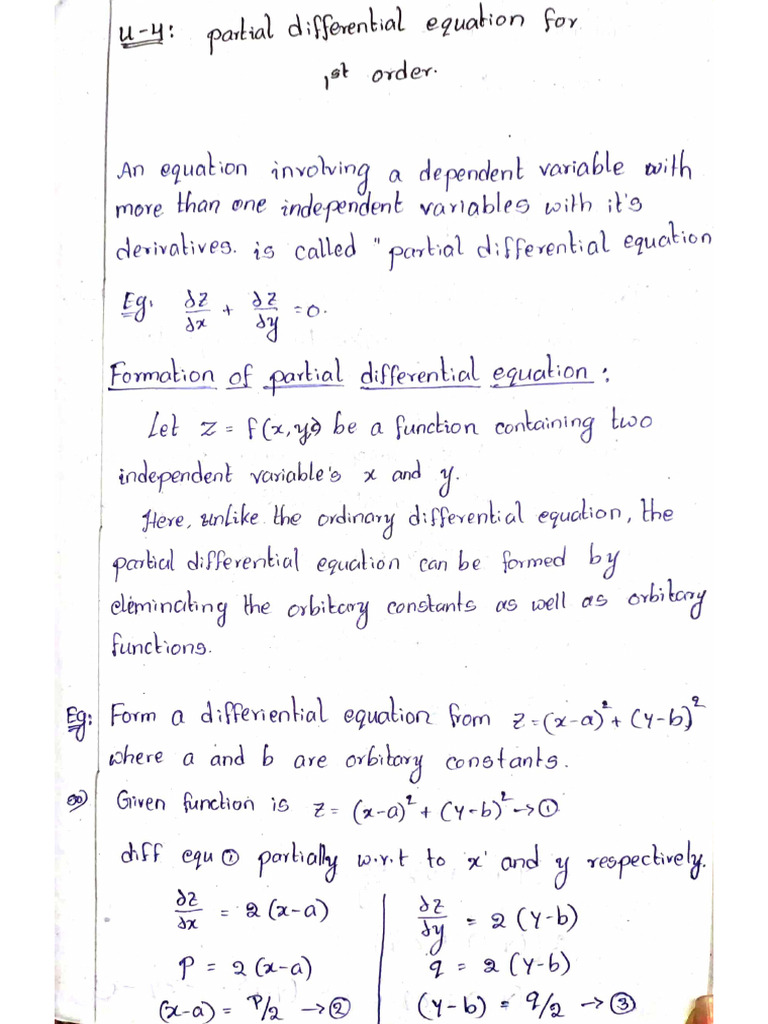 U-4: partial differential equation for
1st order.
An equation involving a dependent variable with
more than one independent variables with it's
derivatives. is called "partial differential equation
Eg: ∂z/∂x + ∂z/∂y = 0.
Formation of partial differential equation :
Let z = f(x,y) be a function containing two
independent variable's x and y.
Here, unlike the ordinary differential equation, the
partial differential equation can be formed by
eleminating the orbitary constants as well as orbitary
functions.
Eg: Form a differiential equation from z=(x-a)²+(y-b)²
where a and b are orbitary constants.
Given function is z = (x-a)² + (y-b)² → ①
diff equ ① partially w.r.t to 'x' and y respectively.
∂z/∂x = 2(x-a) | ∂z/∂y = 2(y-b)
p = 2(x-a) | q = 2(y-b)
(x-a) = p/2 → ② | (y-b) = q/2 → ③